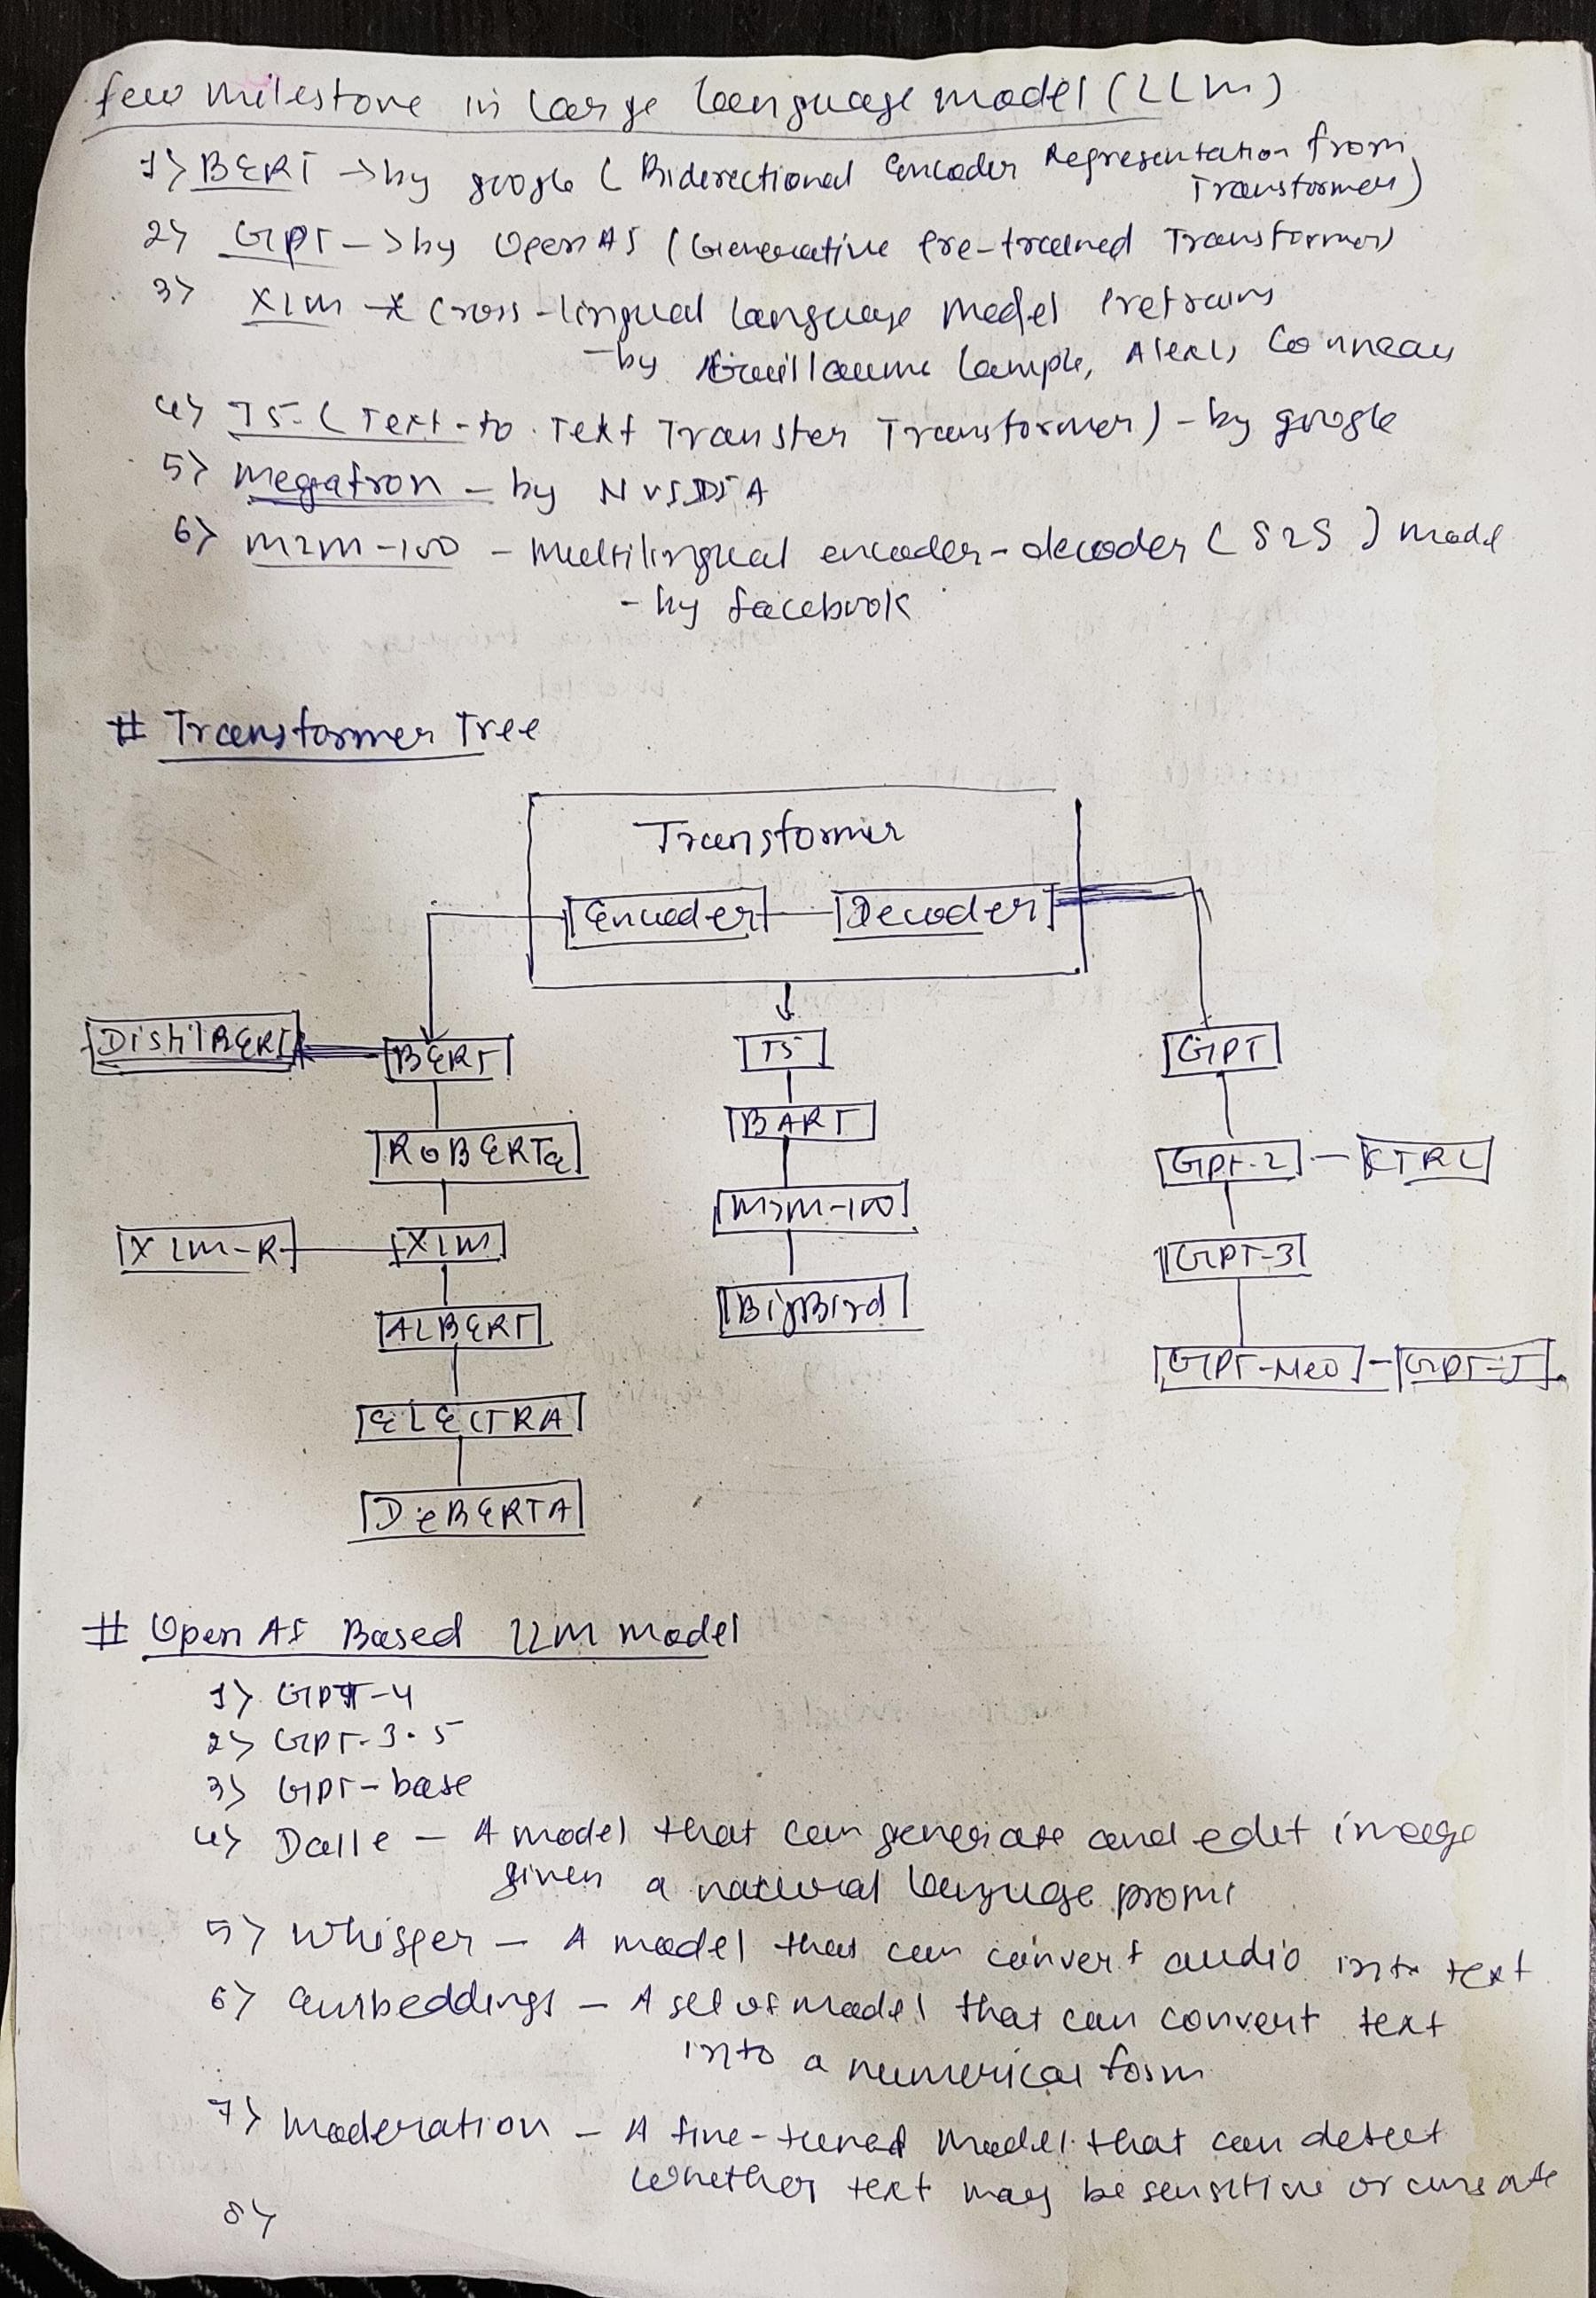 few milestone in large language model (LLM)
1> BERT -> by google ( Bidirectional Encoder Representation from
Transformer)
2> GPT -> by OpenAI (Generative Pre-trained Transformer)
3> XLM - Cross-lingual Language Model Pretrains
- by Guillaume Lample, Alexis Conneau
4> T5 - ( Text-to-Text Transfer Transformer) - by google
5> Megatron - by NVIDIA
6> M2M-100 - Multilingual encoder-decoder ( S2S ) model
- by facebook
# Transformer Tree
Transformer
Encoder Decoder
DistilBERT BERT T5 GPT
BART
RoBERTa GPT-2 CTRL
M2M-100
XLM-R XLM GPT-3
BigBird
ALBERT
GPT-Neo GPT-J
ELECTRA
DeBERTA
# Open AI Based LLM model
1> GPT-4
2> GPT-3.5
3> GPT-base
4> Dalle - A model that can generate and edit image
given a natural language prom
5> Whisper - A model that can convert audio into text
6> embeddings - A set of model that can convert text
into a numerical form
7> Moderation - A fine-tuned model that can detect
whether text may be sensitive or
8>